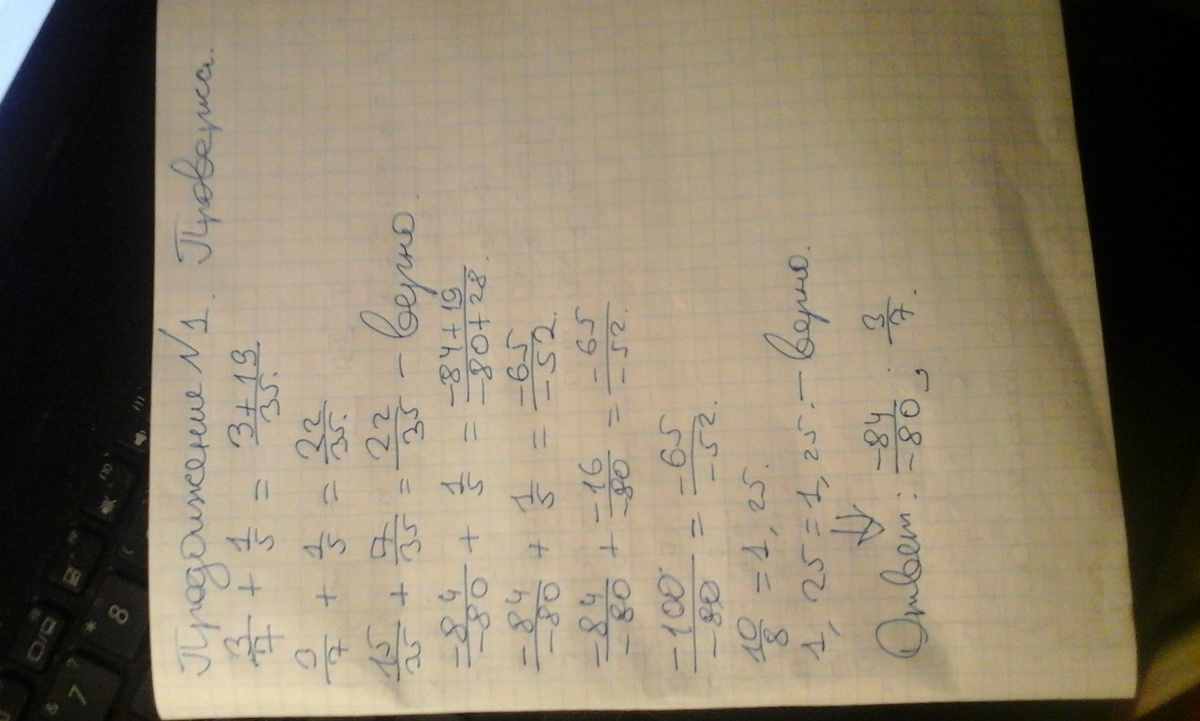 Продолжение №1. Проверка.
3/7 + 1/5 = (3+19)/35.
3/7 + 1/5 = 22/35.
15/35 + 7/35 = 22/35 – верно.
-84/-80 + 1/5 = (-84+19)/(-80+28).
-84/-80 + 1/5 = -65/-52.
-84/-80 + -16/-80 = -65/-52.
-100/-80 = -65/-52.
10/8 = 1,25.
1,25 = 1,25. – верно.
↓
Ответ: -84/-80; 3/7.
8
7